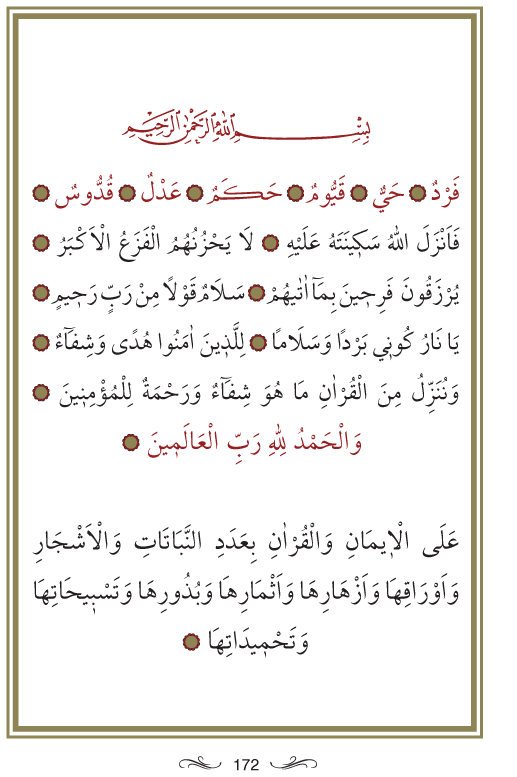 بِسْمِ اللهِ الرَّحْمٰنِ الرَّحِيمِ
فَرْدٌ ۞ حَيٌّ ۞ قَيُّومٌ ۞ حَكَمٌ ۞ عَدْلٌ ۞ قُدُّوسٌ ۞
فَاَنْزَلَ اللهُ سَكِينَتَهُ عَلَيْهِ ۞ لَا يَحْزُنُهُمُ الْفَزَعُ الْاَكْبَرُ ۞
يُرْزَقُونَ فَرِحِينَ بِمَٓا اٰتٰيهُمْ ۞ سَلَامٌ قَوْلًا مِنْ رَبٍّ رَحِيمٍ ۞
يَا نَارُ كُونِي بَرْدًا وَسَلَامًا ۞ لِلَّذِينَ اٰمَنُوا هُدًى وَشِفَٓاءٌ ۞
وَنُنَزِّلُ مِنَ الْقُرْاٰنِ مَا هُوَ شِفَٓاءٌ وَرَحْمَةٌ لِلْمُؤْمِنِينَ ۞
وَالْحَمْدُ لِلهِ رَبِّ الْعَالَمِينَ ۞
عَلَى الْاِيمَانِ وَالْقُرْاٰنِ بِعَدَدِ النَّبَاتَاتِ وَالْاَشْجَارِ
وَاَوْرَاقِهَا وَاَزْهَارِهَا وَاَثْمَارِهَا وَبُذُورِهَا وَتَسْبِيحَاتِهَا
وَتَحْمِيدَاتِهَا ۞
172